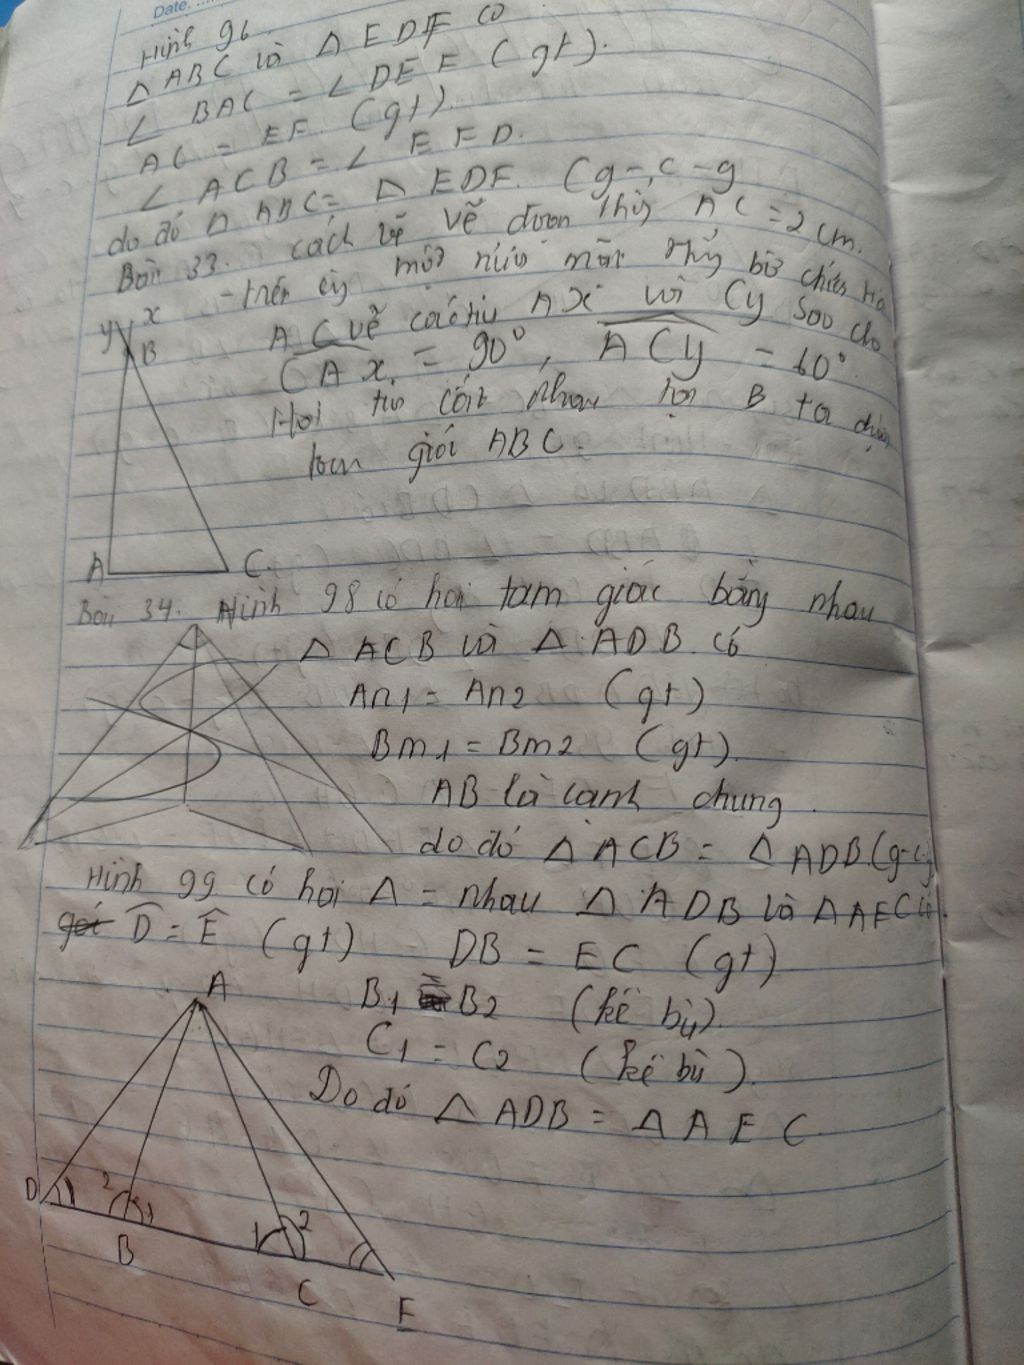 Date.
Hình 96
△ ABC và △ EDF có
∠ BAC = ∠ DEF (gt).
AC = EF. (gt).
∠ ACB = ∠ EFD.
do đó △ ABC = △ EDF. (g-c-g
Bài 33. cách vẽ vẽ đoạn thẳng AC = 2 cm.
- trên cùng một nửa mặt phẳng bờ chứa tia
y x
B
AC vẽ các tia Ax và Cy sao cho
CAx = 90°, ACy = 60°
Hai tia cắt nhau tại B ta được
tam giác ABC.
A C
Bài 34. Hình 98 có hai tam giác bằng nhau
△ ACB và △ ADB có
An1 = An2 (gt)
Bm1 = Bm2 (gt).
AB là cạnh chung.
do đó △ ACB = △ ADB (g-c-g
Hình 99 có hai △ = nhau △ ADB và △ AEC có.
D̂ = Ê (gt) DB = EC (gt)
A
B1 = B2 (kề bù).
C1 = C2 (kề bù).
Do đó △ ADB = △ AEC
D 2 1 1 2
B C E